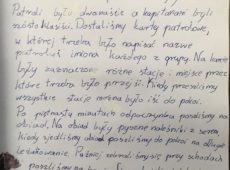 Patroli było dwanaście a kapitanami byli
szóstoklasiści. Dostaliśmy karty patrolowe,
w której trzeba było napisać nazwę
patrolu i imiona każdego z grupy. Na karcie
były zaznaczone różne stacje i miejsce przez
które trzeba było przejść. Kiedy przeszliśmy
wszystkie stacje można było iść do pokoi.
Po piętnastu minutach odpoczynku poszliśmy na
obiad. Na obiad były pyszne naleśniki z serem.
Kiedy zjedliśmy obiad poszliśmy do pokoi na długie
leżakowanie. Później zebraliśmy się przy schodach